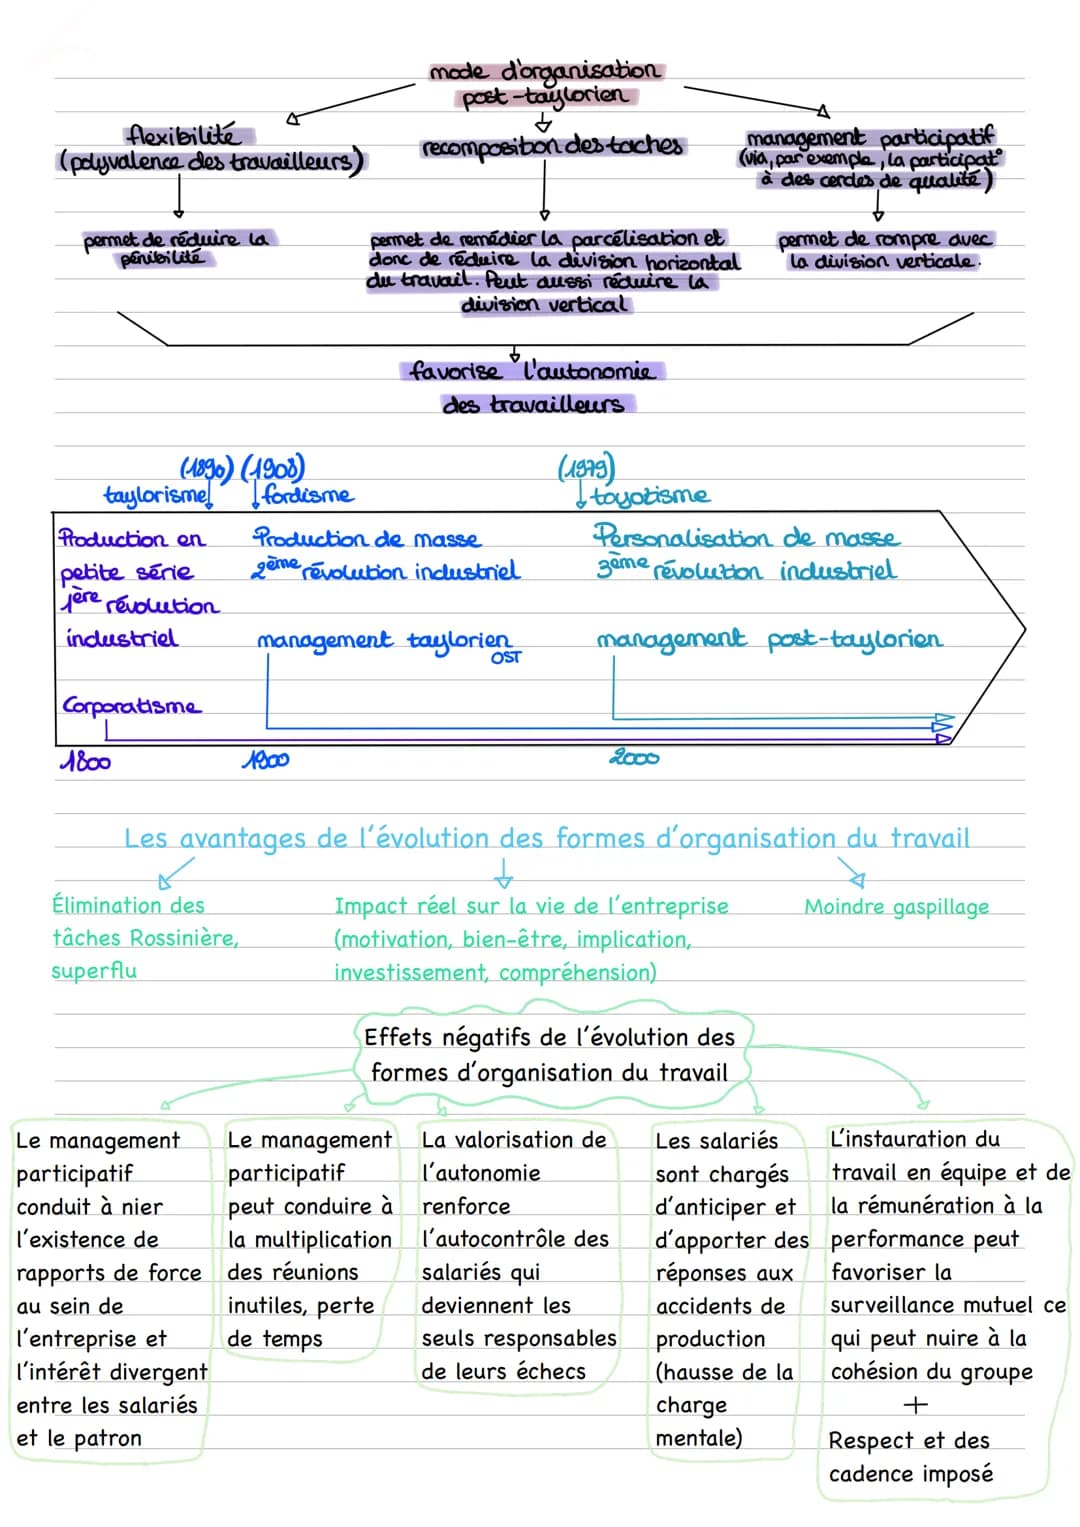 mode d'organisation
post-taylorien
flexibilité
(polyvalence des travailleurs)
recomposition des taches
management participatif
(via, par exemple, la participat°
à des cercles de qualité)
permet de réduire la
pénibilité
permet de remédier la parcélisation et
donc de réduire la division horizontal
du travail. Peut aussi réduire la
division vertical
permet de rompre avec
la division verticale.
favorise l'autonomie
des travailleurs
(1890) (1908)
taylorisme
fordisme
(1979)
toyotisme
Production en
petite série
1ère révolution
industriel
Corporatisme
Production de masse
2ème révolution industriel
management taylorien
OST
Personalisation de masse
3ème révolution industriel
management post-taylorien
1800
1900
2000
Les avantages de l'évolution des formes d'organisation du travail
Élimination des
tâches Rossinière,
superflu
Impact réel sur la vie de l'entreprise
(motivation, bien-être, implication,
investissement, compréhension)
Moindre gaspillage
Effets négatifs de l'évolution des
formes d'organisation du travail
Le management
participatif
conduit à nier
l'existence de
rapports de force
au sein de
l'entreprise et
l'intérêt divergent
entre les salariés
et le patron
Le management
participatif
peut conduire à
la multiplication
des réunions
inutiles, perte
de temps
La valorisation de
l'autonomie
renforce
l'autocontrôle des
salariés qui
deviennent les
seuls responsables
de leurs échecs
Les salariés
sont chargés
d'anticiper et
d'apporter des
réponses aux
accidents de
production
(hausse de la
charge
mentale)
L'instauration du
travail en équipe et de
la rémunération à la
performance peut
favoriser la
surveillance mutuel ce
qui peut nuire à la
cohésion du groupe
+
Respect et des
cadence imposé